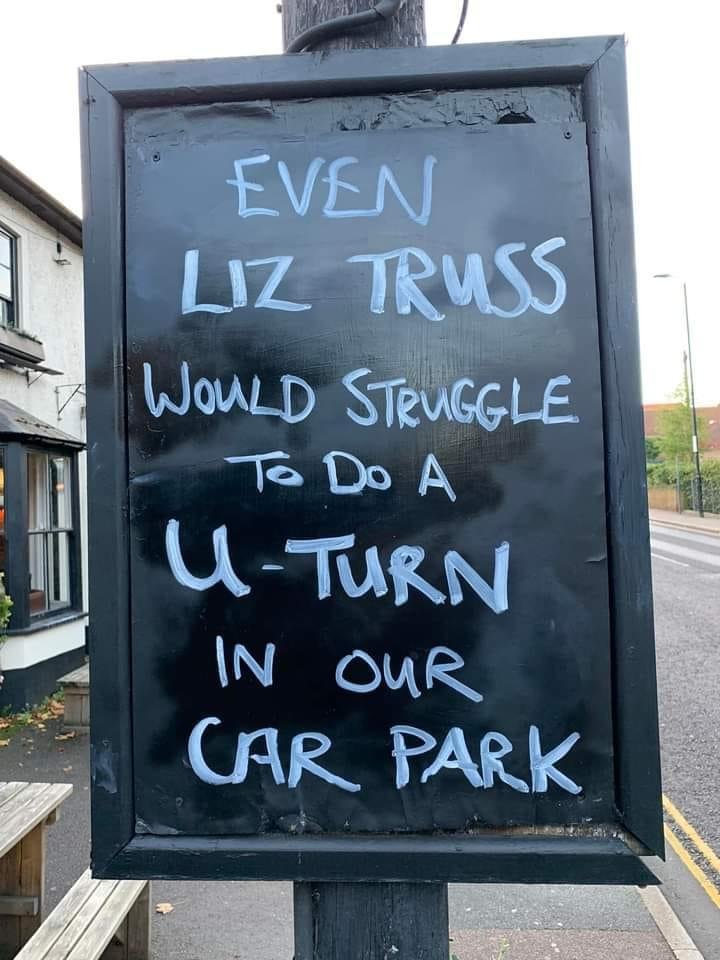 EVEN
LIZ TRUSS
WOULD STRUGGLE
TO DO A
U-TURN
IN OUR
CAR PARK